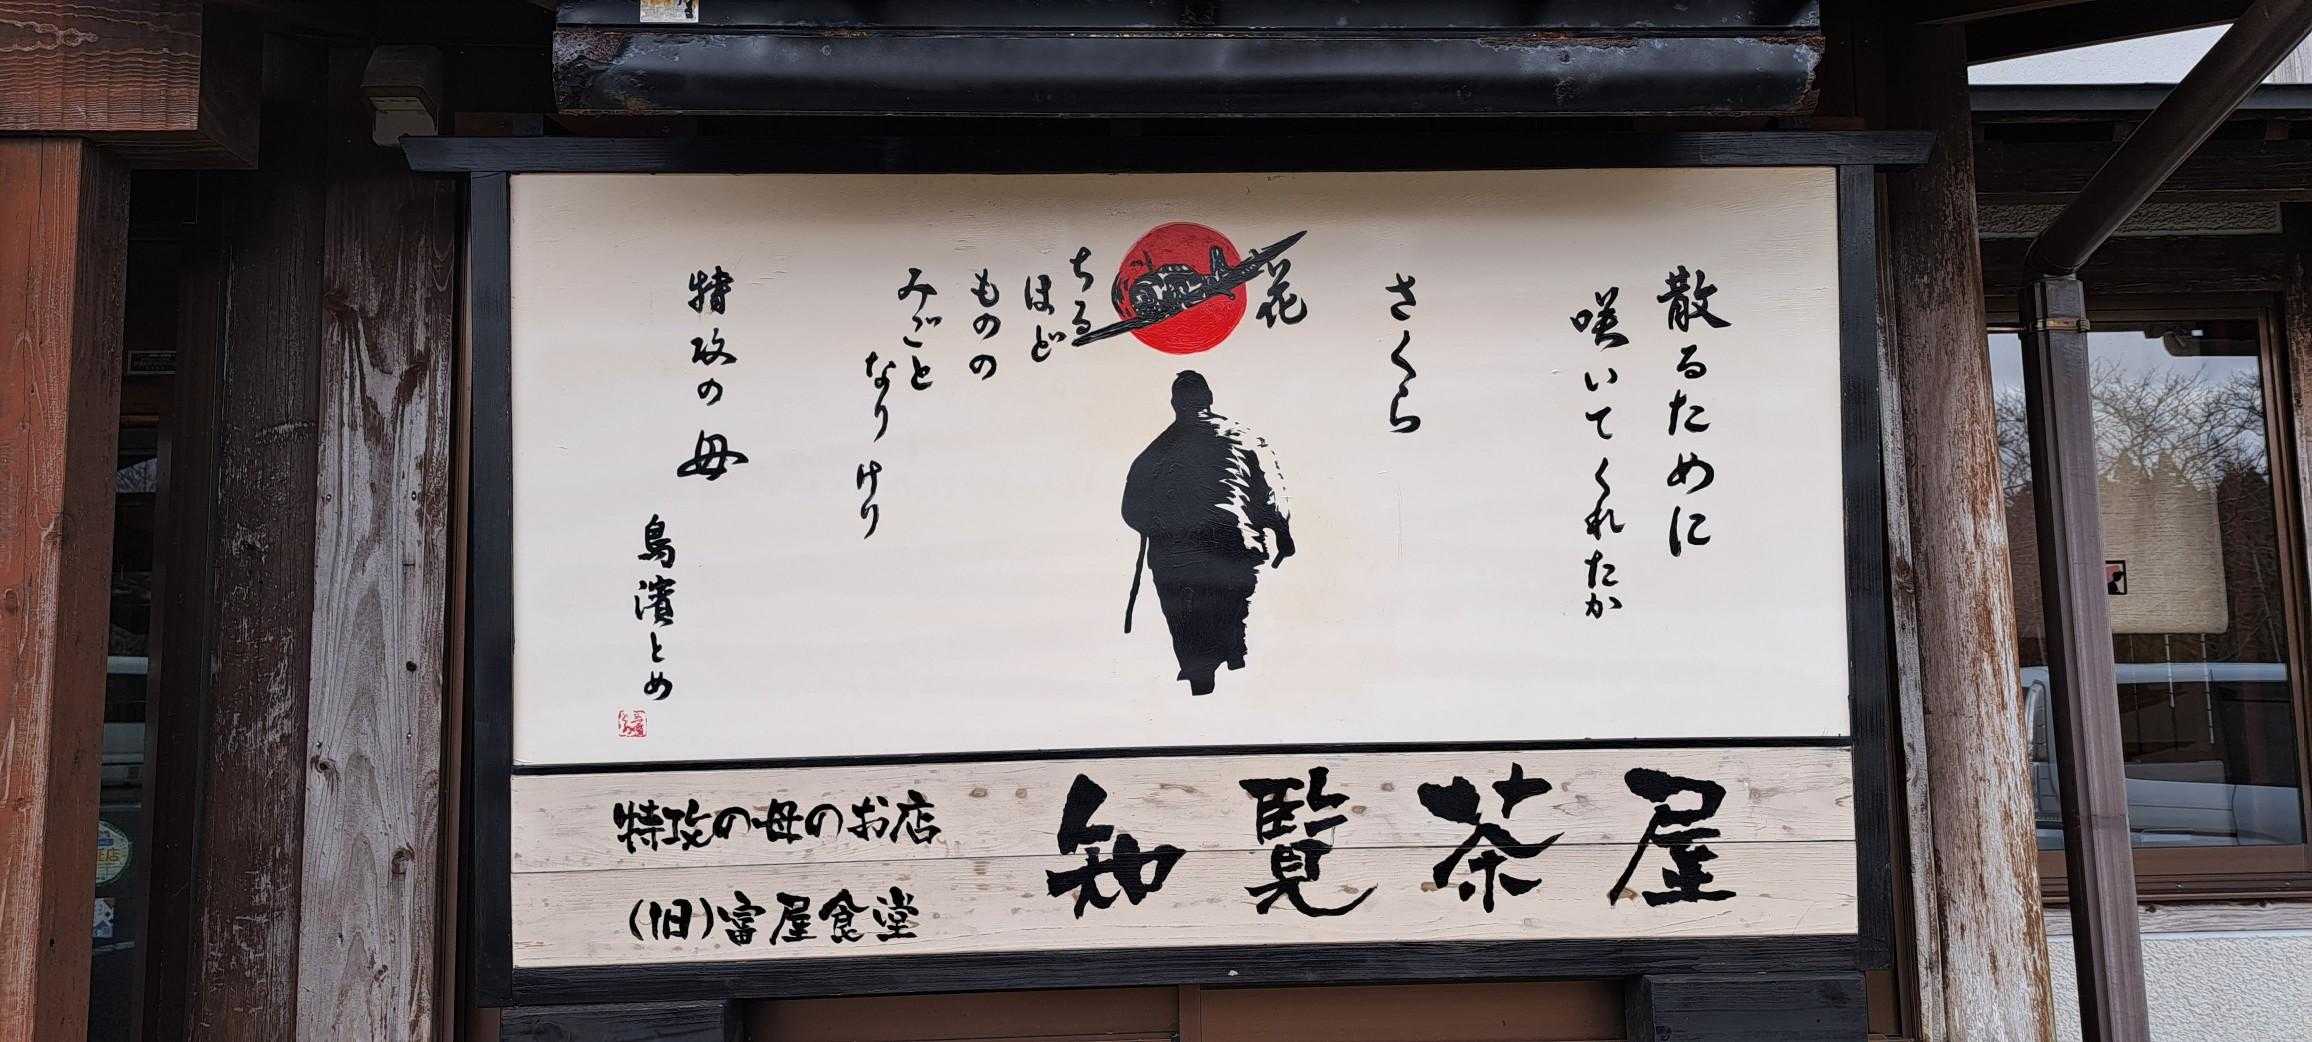 散るために
咲いてくれたか
さくら
花
ちる
ほど
ものの
みごと
なり
けり
特攻の母
鳥濱とめ
特攻の母のお店
(旧)富屋食堂
知覧茶屋